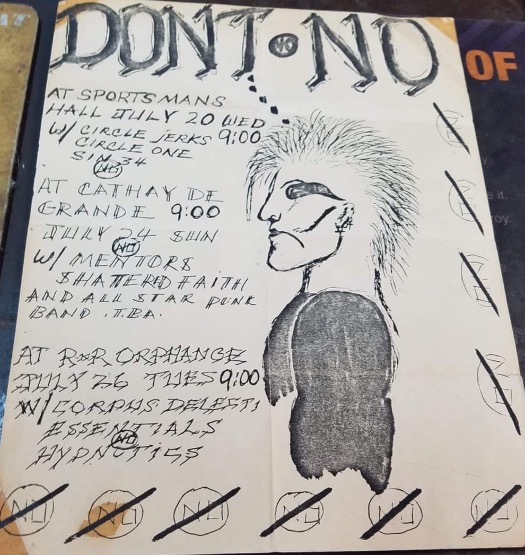 DON'T NO NO
AT SPORTSMANS
HALL JULY 20 WED
W/ CIRCLE JERKS 9:00
CIRCLE ONE
SIN 34
NO
AT CATHAY DE
GRANDE 9:00
JULY 24 SUN
NO
W/ MENTORS
SHATTERED FAITH
AND ALL STAR PUNK
BAND .T.B.A.
AT R&R ORPHANGE
JULY 26 TUES 9:00
W/ CORPUS DELECTI
ESSENTIALS
NO
HYPNOTICS
NU NU NU NU NU NU
OF